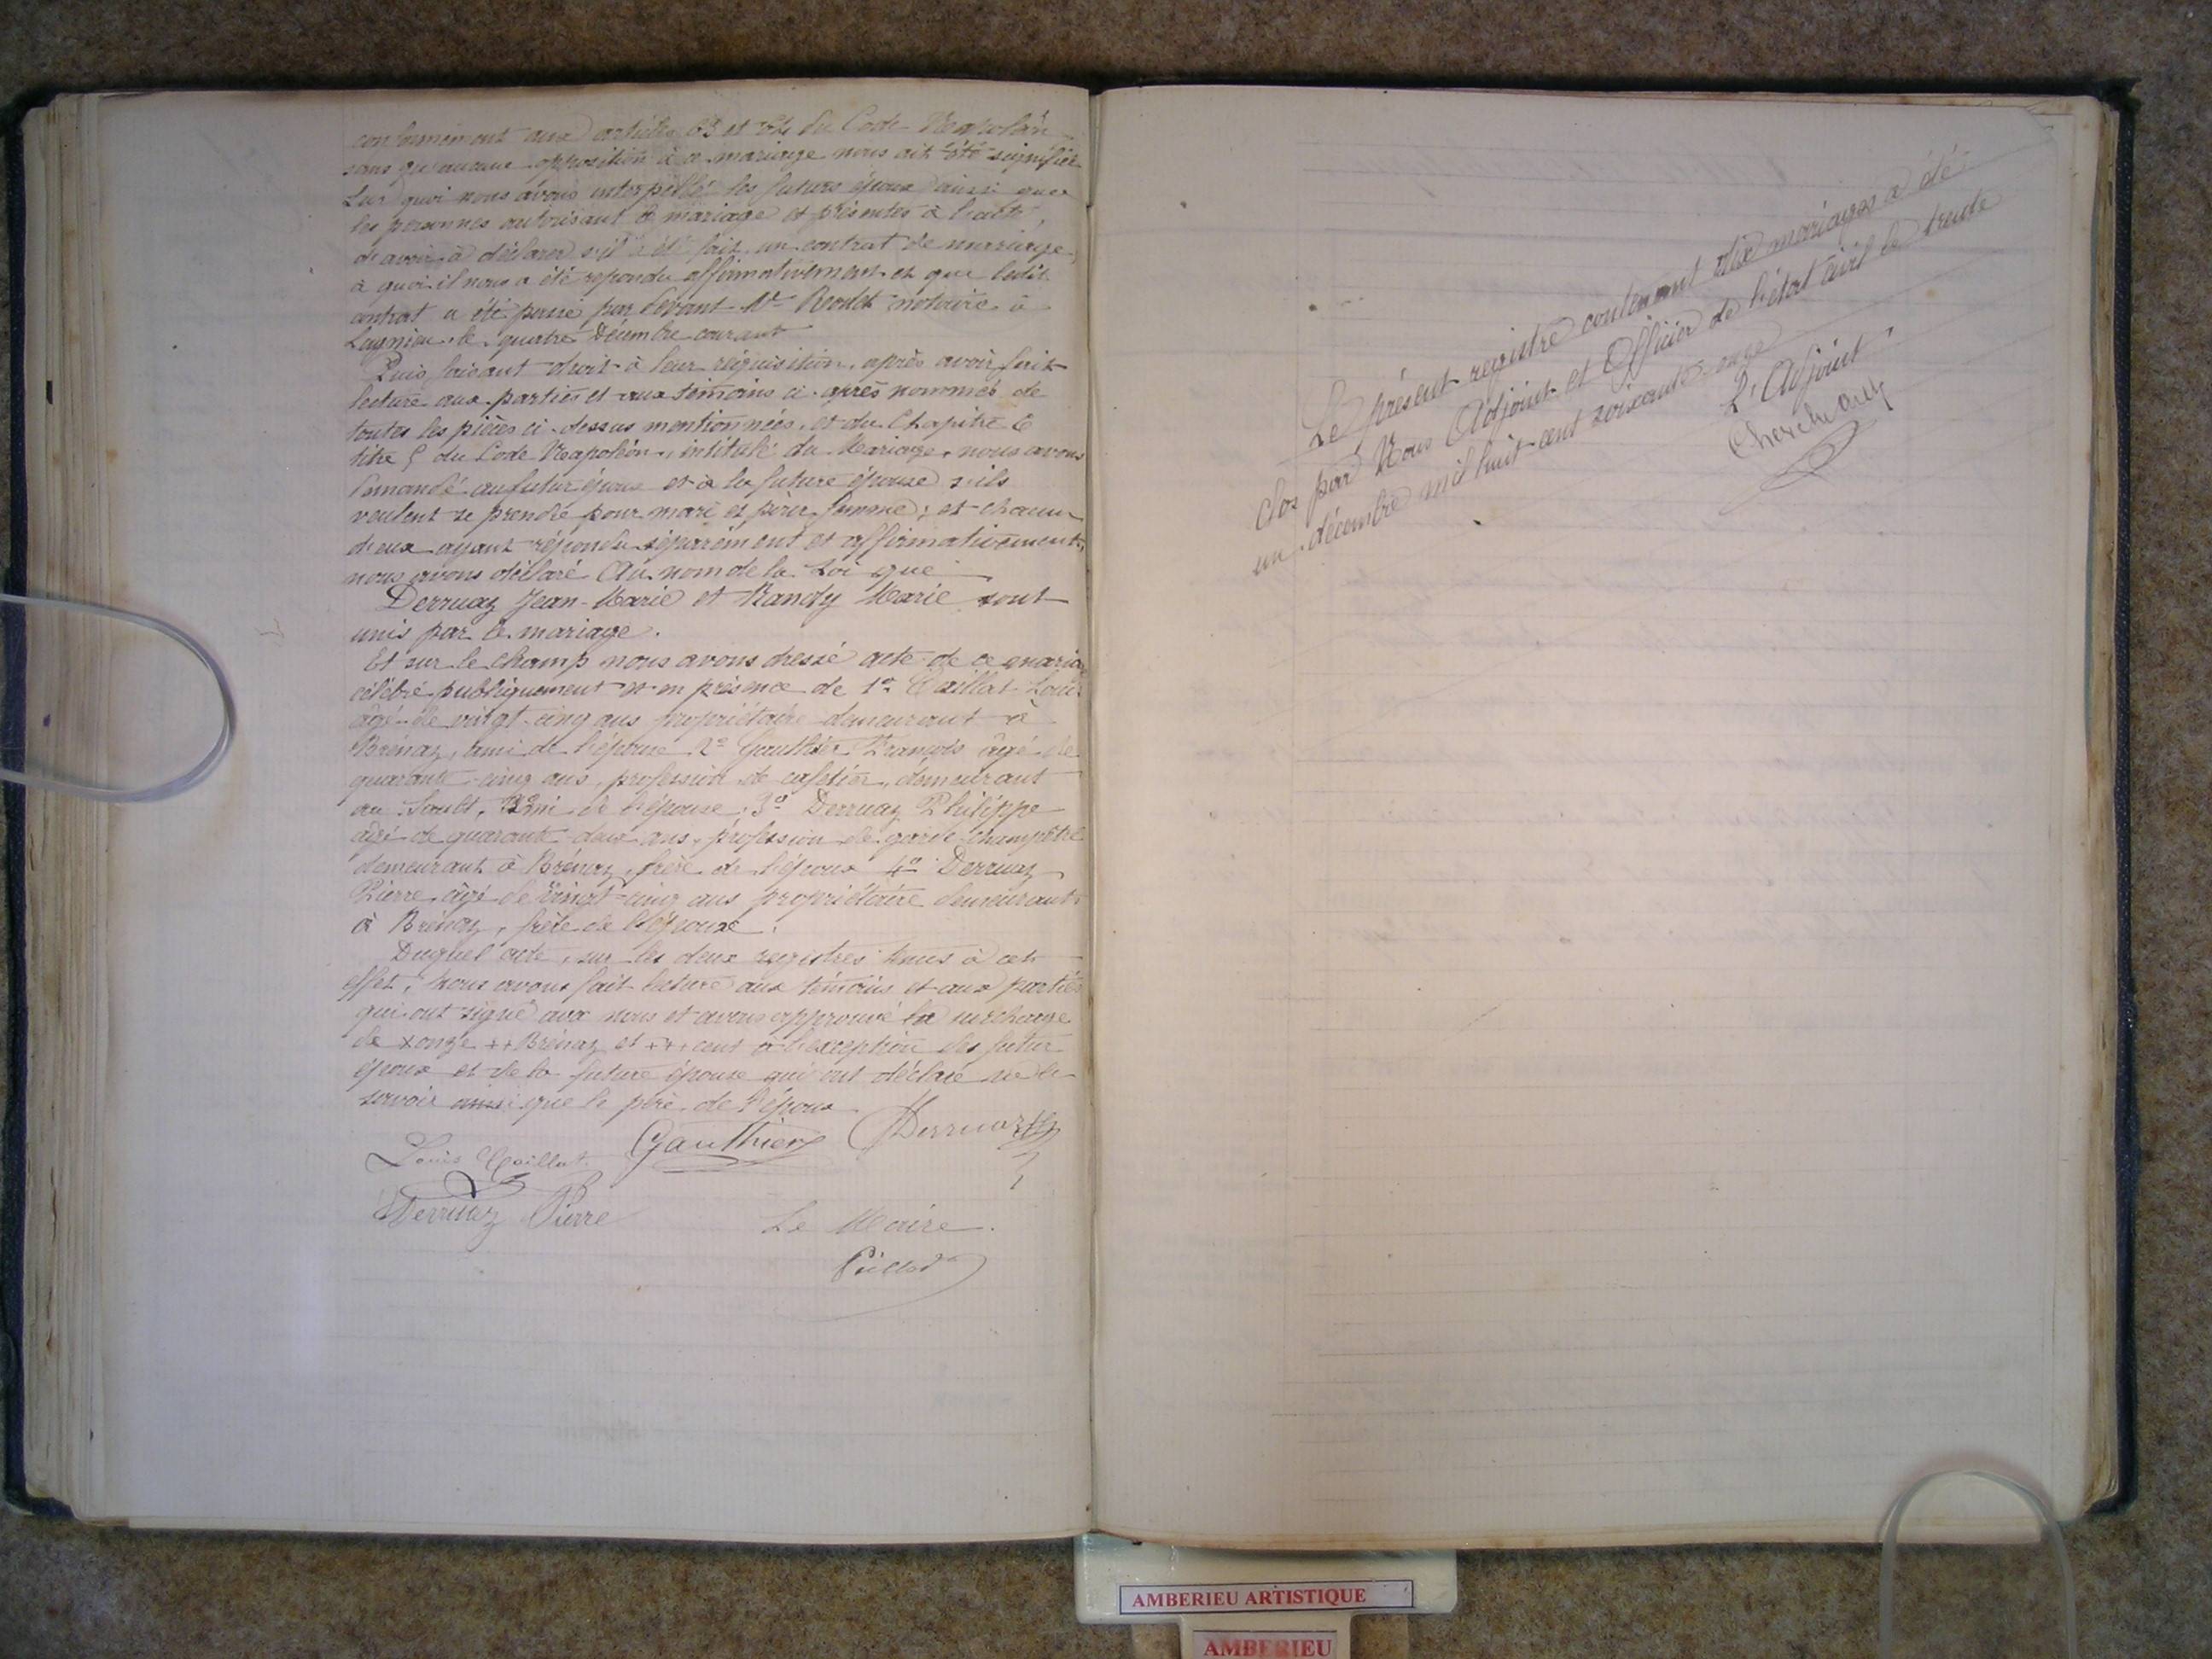 conformément aux articles 63 et 64 du Code Napoléon
sans qu'aucune opposition à ce mariage nous ait été signifiée
Sur quoi nous avons interpellé les futurs époux ainsi que
les personnes autorisant le mariage et présentes à l'acte,
d'avoir à déclarer s'il a été fait un contrat de mariage,
à quoi il nous a été repondu affirmativement et que ledit
contrat a été passé par devant Me notaire à
Lagnieu, le quatre Décembre courant
Puis faisant droit à leur réquisition, après avoir fait
lecture aux parties et aux témoins ci-après nommés de
toutes les pièces ci-dessus mentionnées, et du Chapitre 6
titre 5 du Code Napoléon, intitulé du Mariage, nous avons
demandé au futur époux et à la future épouse s'ils
veulent se prendre pour mari et pour femme; et chacun
d'eux ayant répondu séparément et affirmativement,
nous avons déclaré Au nom de la Loi que
Derruaz Jean-Marie et Nandy Marie sont
unis par le mariage.
Et sur le champ nous avons dressé acte de ce mariage
célébré publiquement et en présence de 1o Caillat Louis
âgé de vingt-cinq ans propriétaire demeurant à
Brénaz, ami de l'épouse 2o Gauthier François âgé de
quarante-cinq ans, profession de cafetier, demeurant
au Sault, ami de l'épouse, 3o Derruaz Philippe
âgé de quarante deux ans, profession de garde-champêtre
demeurant à Brénaz, frère de l'époux 4o Derruaz
Pierre, âgé de vingt-cinq ans propriétaire demeurant
à Brénaz, frère de l'époux.
Duquel acte, sur les deux registres tenus à cet
effet, nous avons fait lecture aux témoins et aux parties
qui ont signé avec nous et avons approuvé la surcharge
de x onze ++ Brénaz et +++ cent à l'exception des futur
époux et de la future épouse qui ont déclaré ne le
savoir ainsi que le père de l'époux
Louis Caillat Gauthier Derruaz
Derruaz Pierre Le Maire.
Le présent registre contenant dix mariages a été
clos par Nous Adjoint et Officier de l'état civil le trente
un décembre mil huit cent soixante-onze
L'Adjoint
AMBERIEU ARTISTIQUE
AMBERIEU